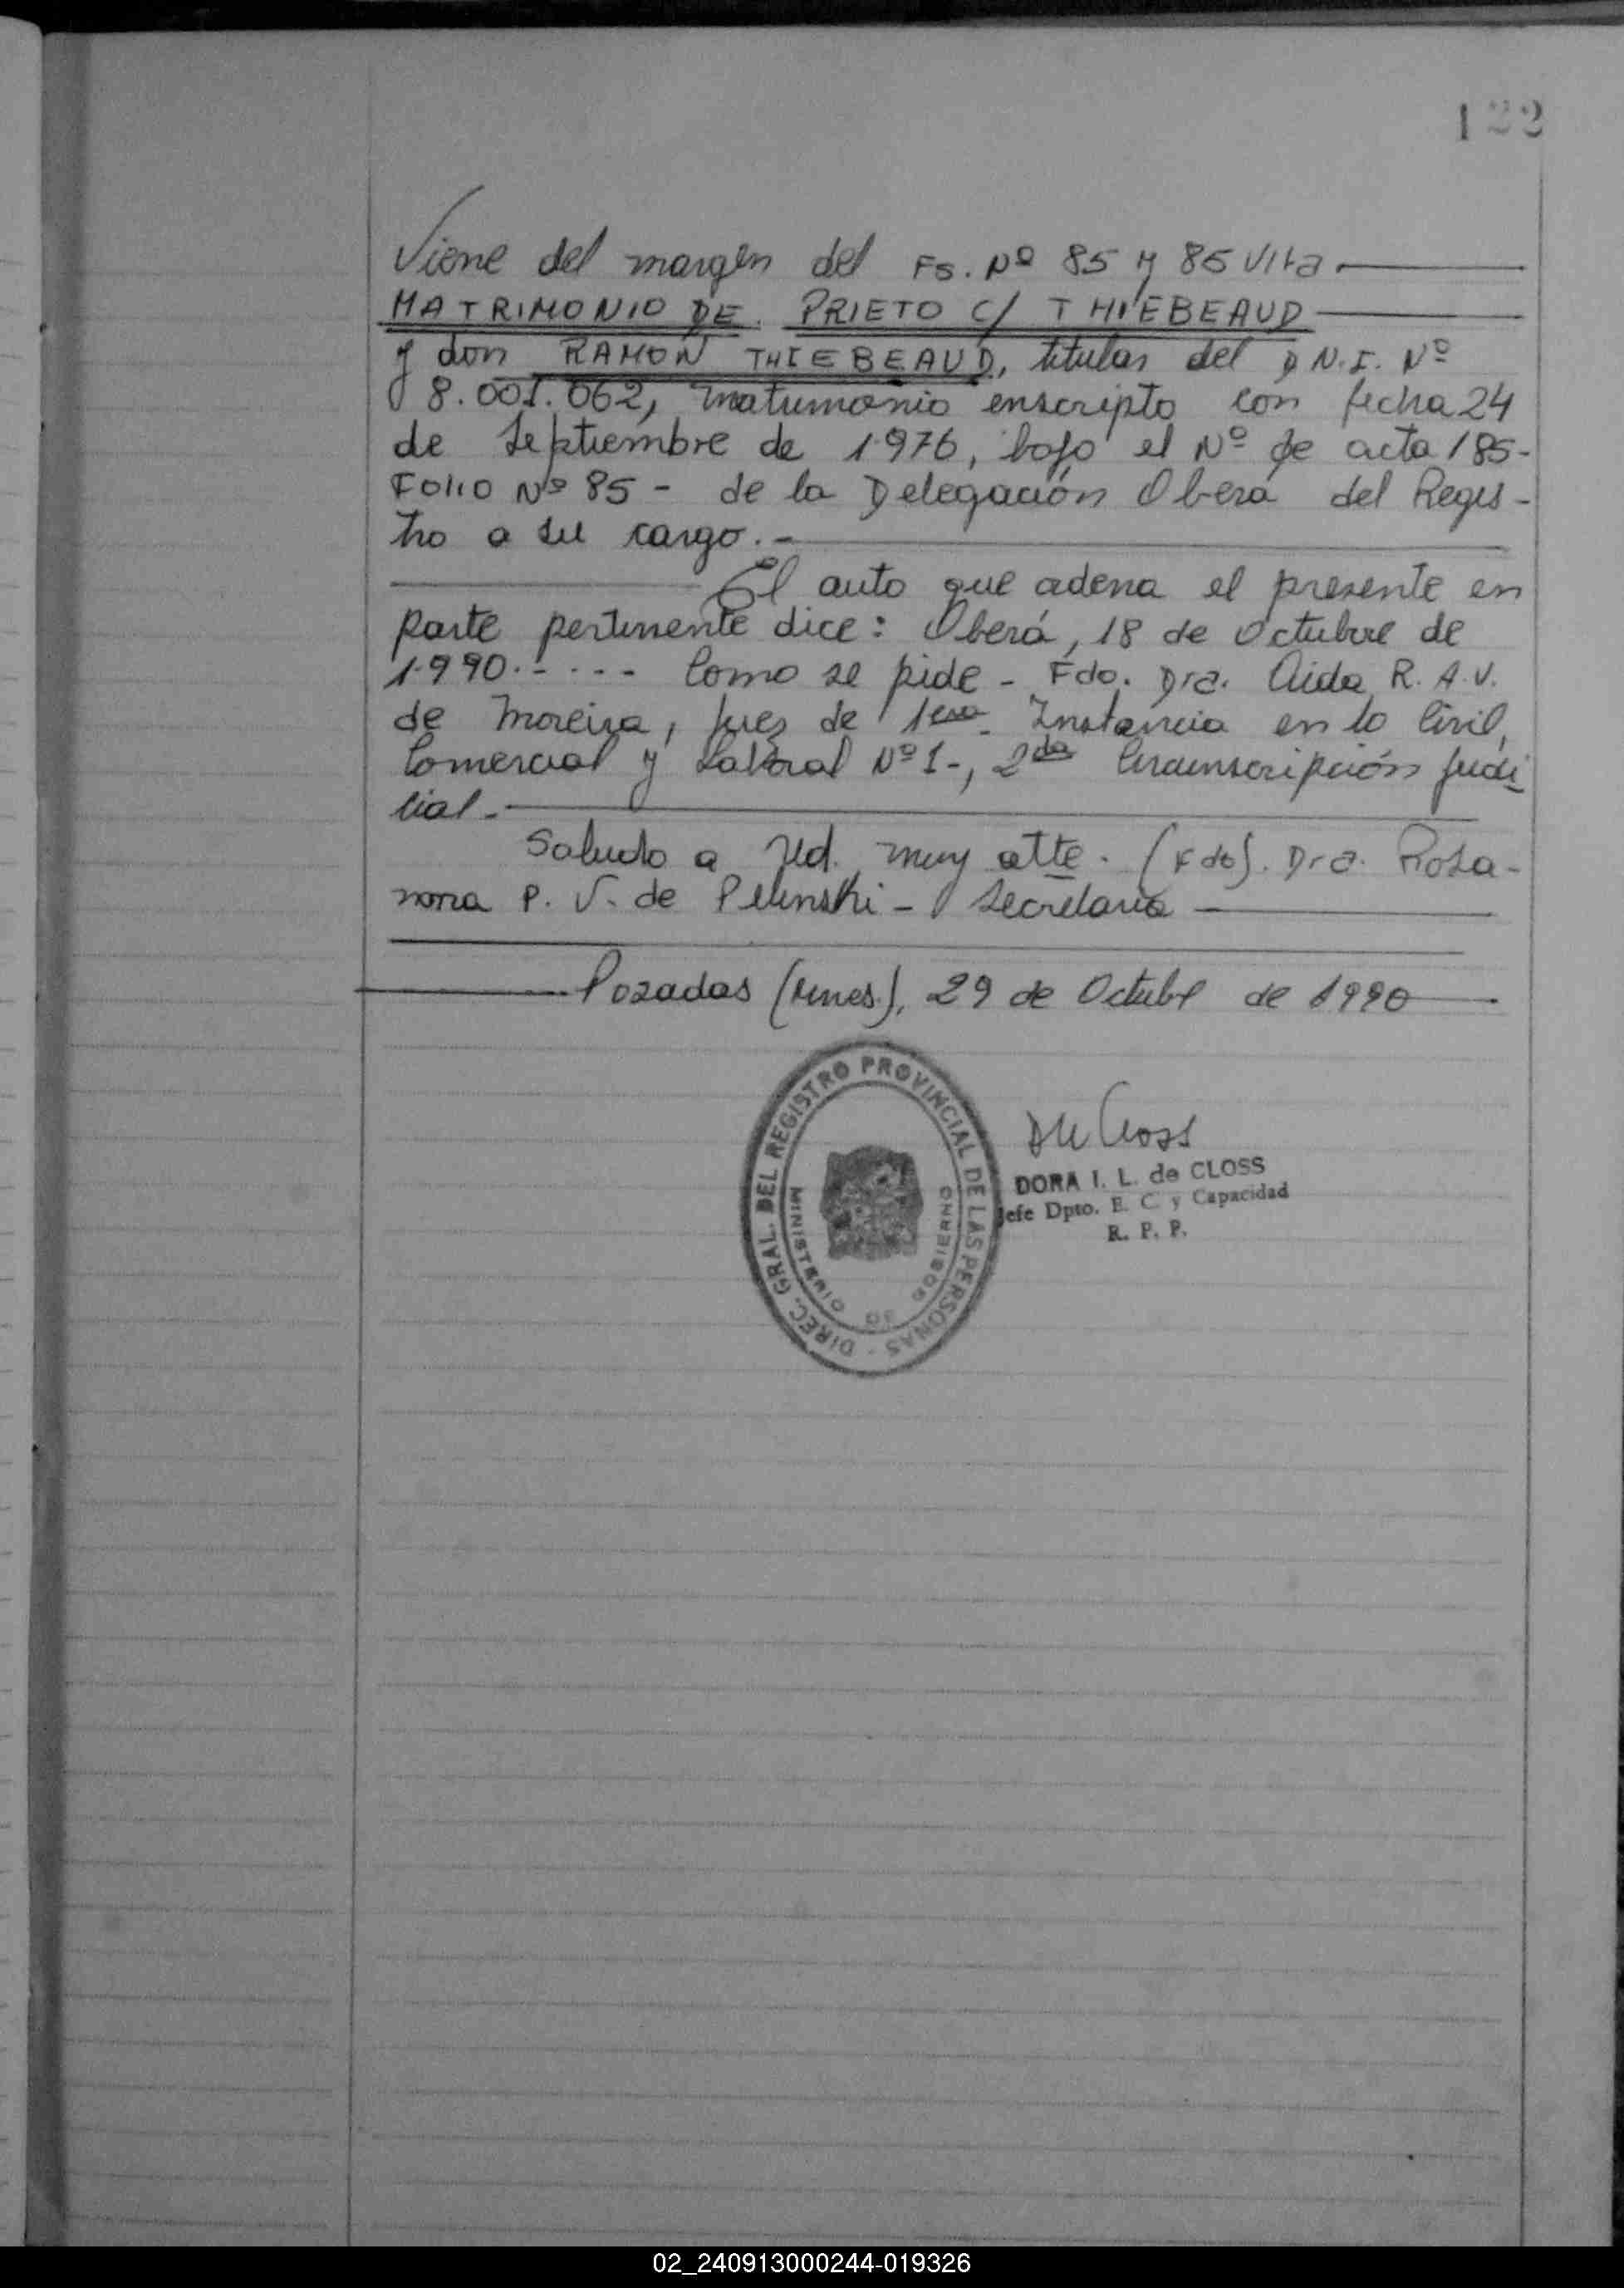 122
Viene del margen del Fs. Nº 85 y 85 Vlta.
MATRIMONIO DE PRIETO C/ THIEBEAUD
y don RAMON THIEBEAUD, titular del D.N.I. Nº
8.001.062, matrimonio inscripto con fecha 24
de Septiembre de 1.976, bajo el Nº de acta 185-
Folio Nº 85 - de la Delegación Oberá del Regis-
tro a su cargo.-
El auto que ordena el presente en
parte pertinente dice: Oberá, 18 de Octubre de
1.990.- . . . - Como se pide - Fdo. Dra. Aida R. A. V.
de Moreira, Juez de 1era. Instancia en lo Civil,
Comercial y Laboral Nº 1-, 2da Circunscripción Judi
cial.-
Saludo a Ud. muy atte. (Fdo). Dra. Rosa-
nna P. V. de Pelinski - Secretaria
Posadas (Mnes.), 29 de Octubre de 1990
DIREC. GRAL. DEL REGISTRO PROVINCIAL DE LAS PERSONAS -
MINISTERIO DE GOBIERNO
DORA I. L. de CLOSS
Jefe Dpto. E. C. y Capacidad
R. P. P.
02_240913000244-019326